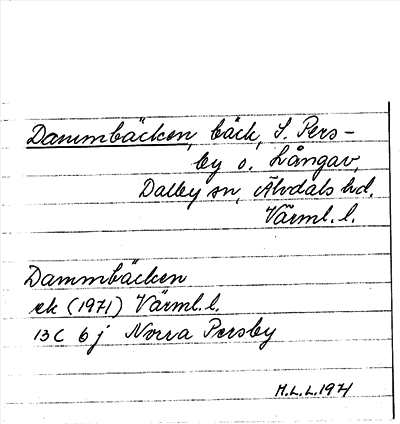 Dammbäcken, bäck, S. Pers-
by o. Långav,
Dalby sn, Älvdals hd,
Värml. l.
Dammbäcken
ek (1971) Värml. l.
13C 6j Norra Persby
M.L.L. 1971